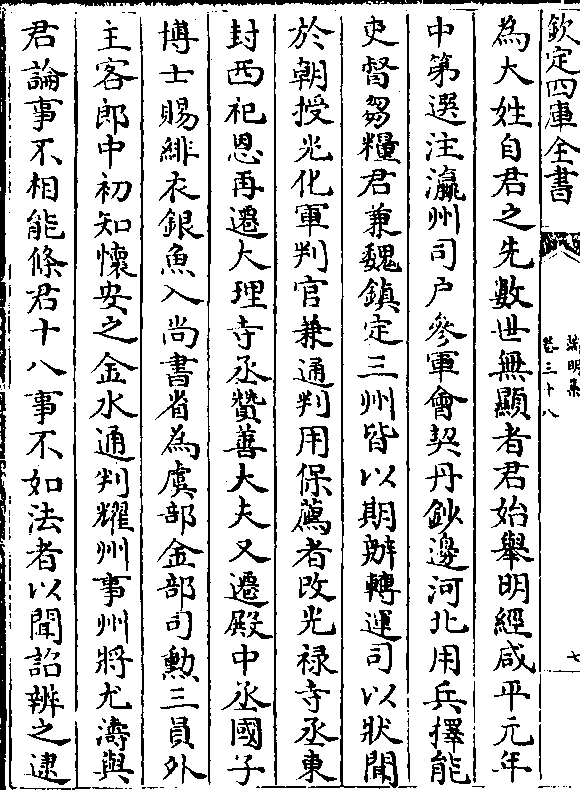 欽定四庫全書
端明集
卷三十八
七
為大姓自君之先數世無顯者君始舉明經咸平元年
中第選注瀛州司户參軍會契丹鈔邊河北用兵擇能
吏督芻糧君兼魏鎮定三州皆以期辦轉運司以狀聞
於朝授光化軍判官兼通判用保薦者改光禄寺丞東
封西祀恩再遷大理寺丞贊善大夫又遷殿中丞國子
博士賜緋衣銀魚入尚書省為虞部金部司勲三員外
主客郎中初知懷安之金水通判耀州事州將尤濤與
君論事不相能條君十八事不如法者以聞詔辨之逮